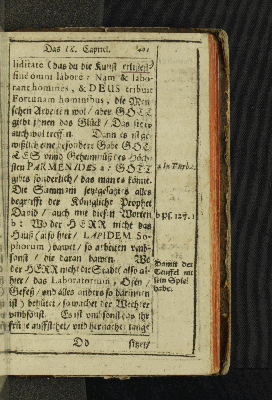 Das IX. Capitel. 401
liditate (das du die Kunst erlangest)
sine omni labore: Nam & labo-
rant homines, & DEUS tribuit
Fortunam hominibus, die Men-
schen Arbeiten wol / aber GOTT
giebt jhnen das Glück / Das stets
auch wol treffen. Dann es ist ge-
wißlich eine besondere Gabe GOT-
TES unnd Geheimnüß des Höch-
sten PARMENIDES a: GOTT
gibts sonderlich / das man es könte.
Die Summam jetzgesagtes alles
begrifft der Königliche Prophet
David / auch mit diesen Worten
b: Wo der HERR nicht das
Hauß (also hier / LAPIDEM So-
phorum) bawet / so arbeiten umb-
sonst / die daran bawen. Wo
der HERR nicht die Stadt (also al-
hier / das Laboratorium, Ofen /
Gefeß / und alles anders so darinnen
ist) behütet / so wachet der Wechter
umbsonst. Es ist umbsonst das ihr
früe auffstehet / und hernach lange
Dd sitzet /
a In Turba.
b Ps. 127. 1
Damit der
Teuffel nit
sein Spiel
habe.